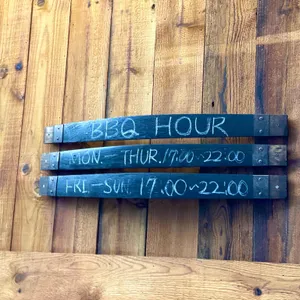 BBQ HOUR
MON. – THUR. 17:00~22:00
FRI – SUN. 17:00~22:00